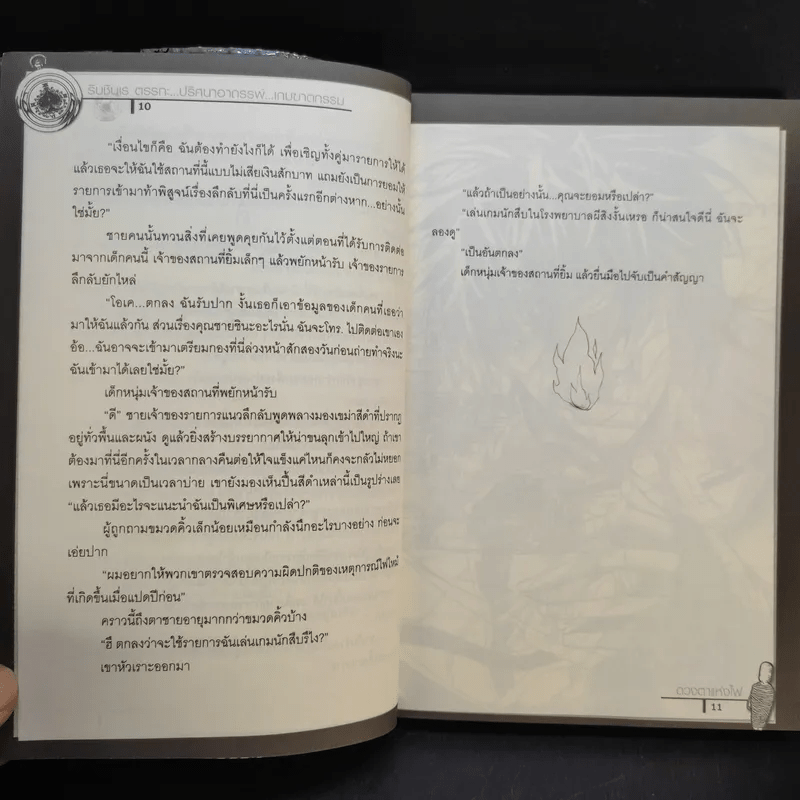 รินชินเร ตรรกะ...ปริศนาอาถรรพ์...เกมฆาตกรรม
10
"เงื่อนไขก็คือ ฉันต้องทำยังไงก็ได้ เพื่อเชิญทั้งคู่มารายการให้ได้
แล้วเธอจะให้ฉันใช้สถานที่นี้แบบไม่เสียเงินสักบาท แถมยังเป็นการยอมให้
รายการเข้ามาท้าพิสูจน์เรื่องลึกลับที่นี่เป็นครั้งแรกอีกต่างหาก...อย่างนั้น
ใช่มั้ย?"
ชายคนนั้นทวนสิ่งที่เคยพูดคุยกันไว้ตั้งแต่ตอนที่ได้รับการติดต่อ
มาจากเด็กคนนี้ เจ้าของสถานที่ยิ้มเล็กๆ แล้วพยักหน้ารับ เจ้าของรายการ
ลึกลับยักไหล่
"โอเค...ตกลง ฉันรับปาก งั้นเธอก็เอาข้อมูลของเด็กคนที่เธอว่า
มาให้ฉันแล้วกัน ส่วนเรื่องคุณชายชินะอะไรนั่น ฉันจะโทร. ไปติดต่อเขาเอง
อ้อ...ฉันอาจจะเข้ามาเตรียมกองที่นี่ล่วงหน้าสักสองวันก่อนถ่ายทำจริงนะ
ฉันเข้ามาได้เลยใช่มั้ย?"
เด็กหนุ่มเจ้าของสถานที่พยักหน้ารับ
"ดี" ชายเจ้าของรายการแนวลึกลับพูดพลางมองเขม่าสีดำที่ปรากฏ
อยู่ทั่วพื้นและผนัง ดูแล้วยิ่งสร้างบรรยากาศให้น่าขนลุกเข้าไปใหญ่ ถ้าเขา
ต้องมาที่นี่อีกครั้งในเวลากลางคืนต่อให้ใจแข็งแค่ไหนก็คงจะกลัวไม่หยอก
เพราะนี่ขนาดเป็นเวลาบ่าย เขายังมองเห็นปื้นสีดำเหล่านี้เป็นรูปร่างเลย
"แล้วเธอมีอะไรจะแนะนำฉันเป็นพิเศษหรือเปล่า?"
ผู้ถูกถามขมวดคิ้วเล็กน้อยเหมือนกำลังนึกอะไรบางอย่าง ก่อนจะ
เอ่ยปาก
"ผมอยากให้พวกเขาตรวจสอบความผิดปกติของเหตุการณ์ไฟไหม้
ที่เกิดขึ้นเมื่อแปดปีก่อน"
คราวนี้ถึงตาชายอายุมากกว่าขมวดคิ้วบ้าง
"ฮึ ตกลงว่าจะใช้รายการฉันเล่นเกมนักสืบรึไง?"
เขาหัวเราะออกมา
"แล้วถ้าเป็นอย่างนั้น...คุณจะยอมหรือเปล่า?"
"เล่นเกมนักสืบในโรงพยาบาลผีสิงงั้นเหรอ ก็น่าสนใจดีนี่ ฉันจะ
ลองดู"
"เป็นอันตกลง"
เด็กหนุ่มเจ้าของสถานที่ยิ้ม แล้วยื่นมือไปจับเป็นคำสัญญา
ดวงตาแห่งไฟ
11